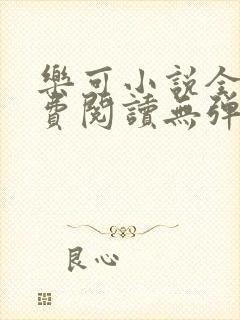 樂可小說全
費閱讀無彈
良心